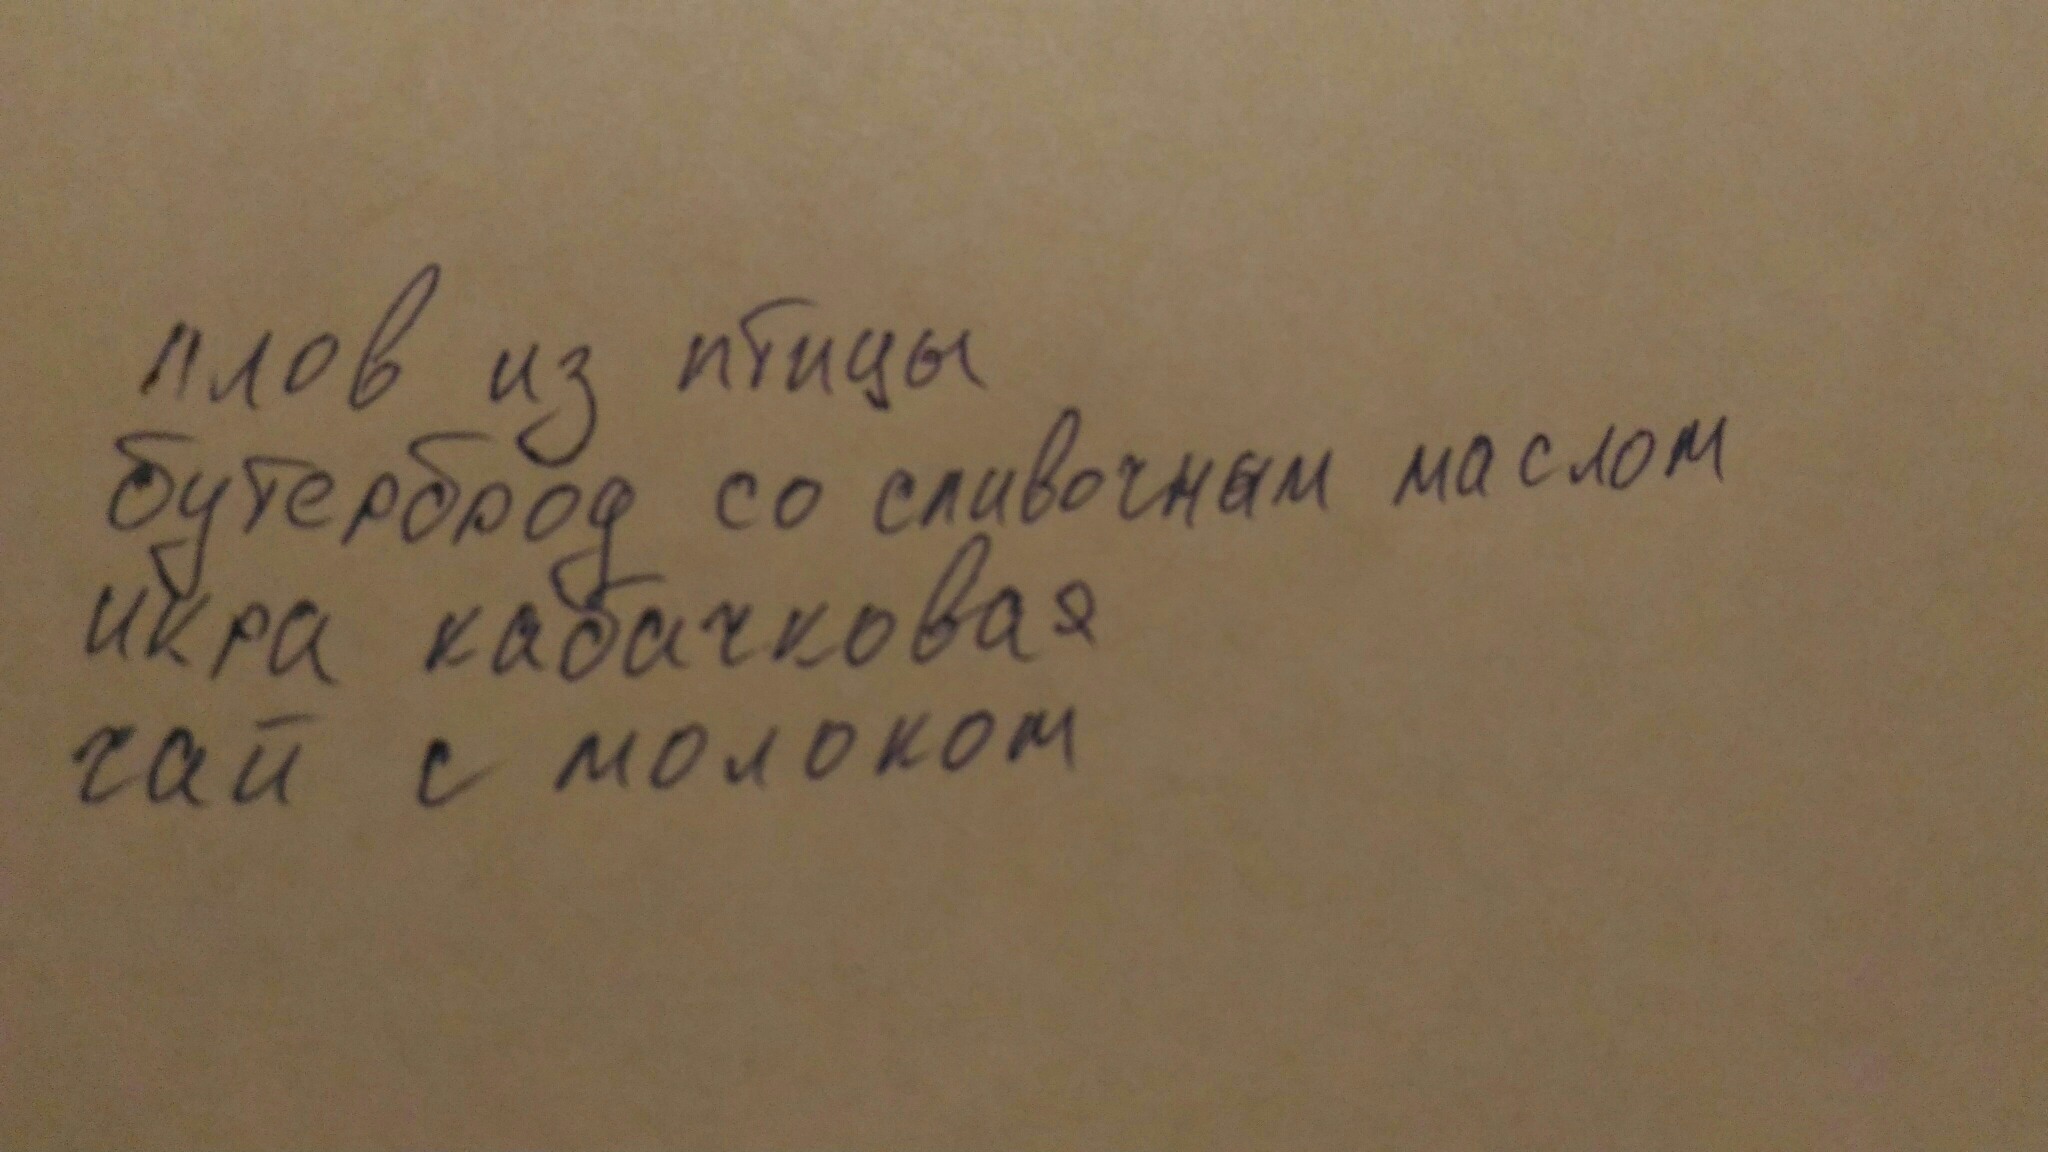 плов из птицы
бутерброд со сливочным маслом
икра кабачковая
чай с молоком